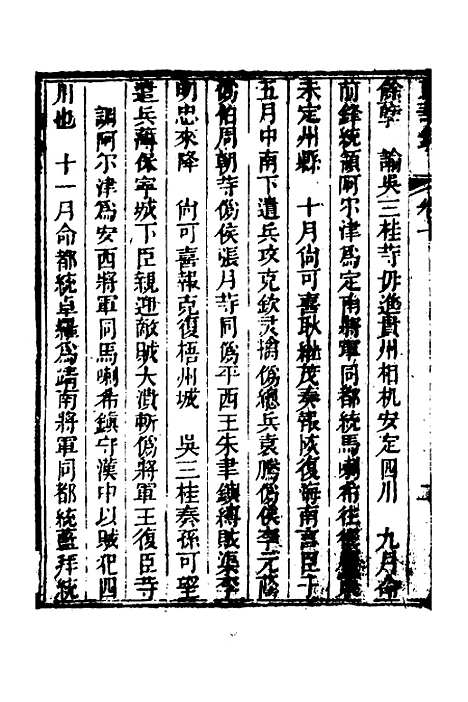 餘孽　諭吳三桂等毋進貴州相机安定四川　九月命
前鋒統領阿尔津為定南將軍同都統馬喇希往
未定州縣　十月尚可喜耿繼茂奏報恢復海南喜臣于
五月中南下遣兵攻克欽灵擒偽總兵袁騰偽侯李元蔭
偽伯周朝等偽侯張月等同偽平西王朱聿鍔縛賊渠李
明忠來降　尚可喜報克復梧州城　吳三桂奏孫可望
遣兵薄保寧城下臣親迎敵賊大潰斬偽將軍王復臣等
調阿尔津為安西將軍同馬喇希鎮守漢中以賊犯四
川也　十一月命都統卓羅為靖南將軍同都統藍拜統